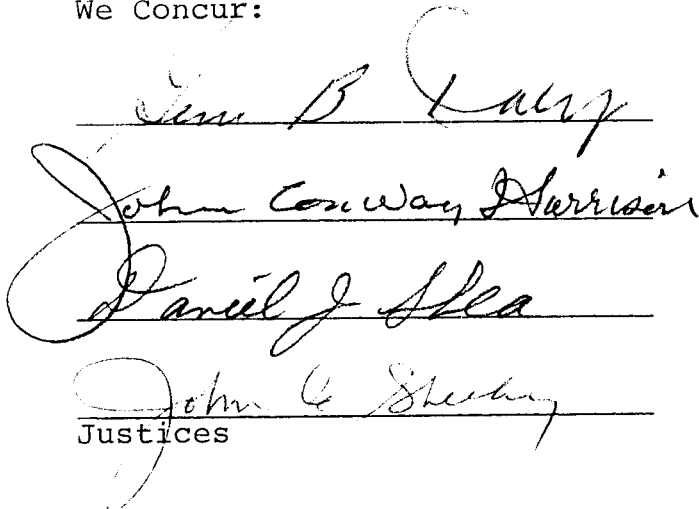 We Concur:
Gene B Daly
John Conway Harrison
Daniel J Shea
John C Sheehy
Justices